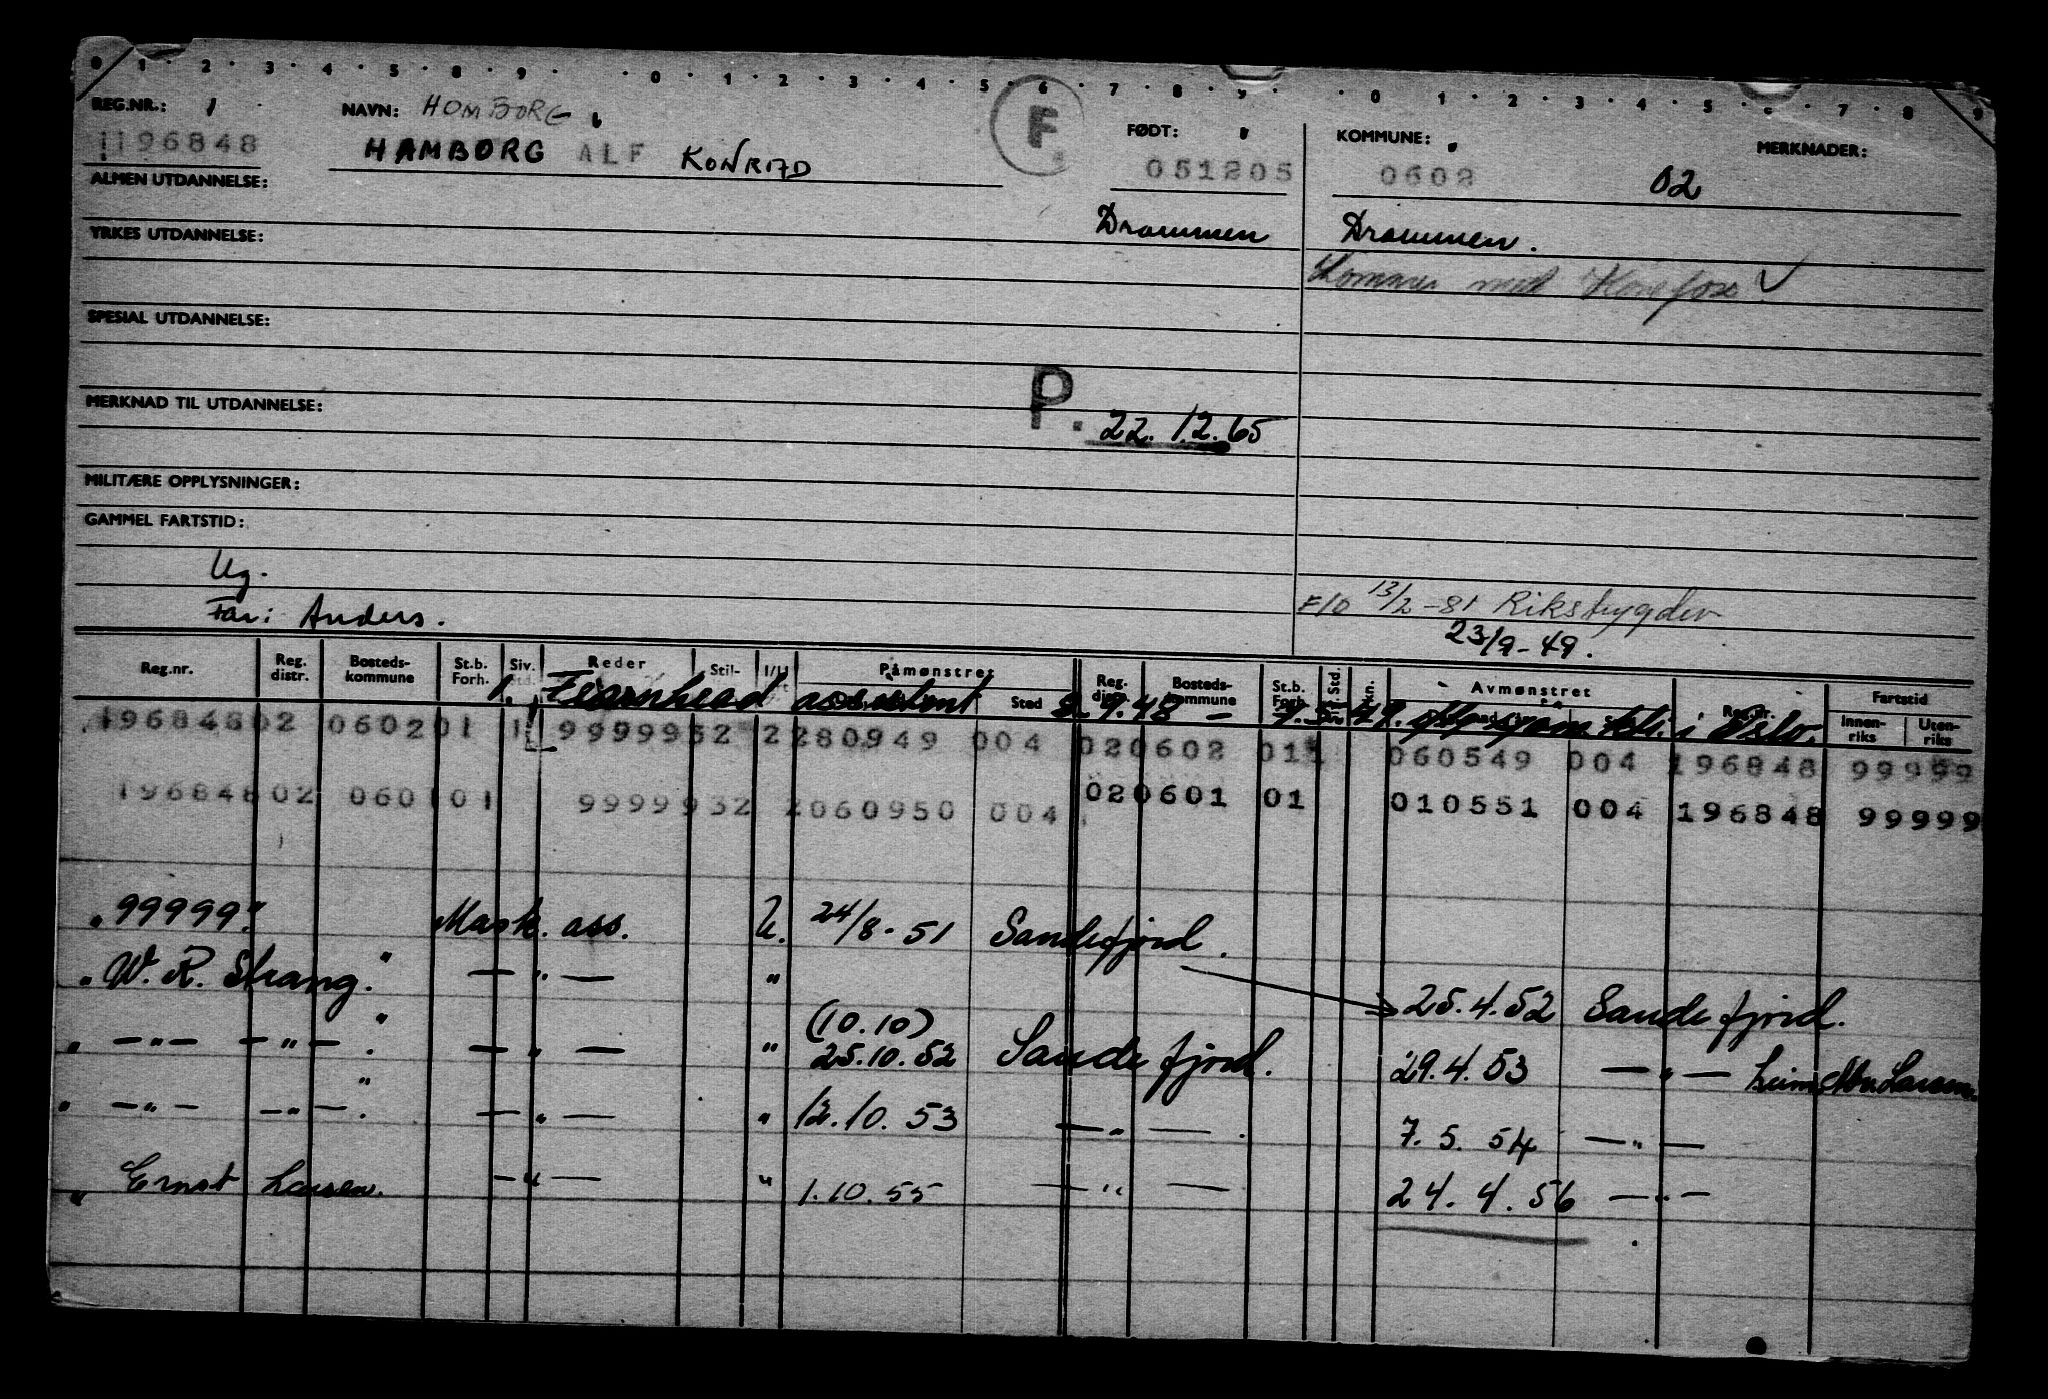 0 1 2 3 4 5 8 9 0 1 2 3 4 5 6 7 8 9 0 1 2 3 4 5 6 7 8 9
REG.NR.: NAVN: HOMBORG F FØDT: KOMMUNE: MERKNADER:
196848 HAMBORG ALF KONRAD 051205 0602 02
ALMEN UTDANNELSE:
Drammen Drammen.
YRKES UTDANNELSE:
SPESIAL UTDANNELSE:
MERKNAD TIL UTDANNELSE:
P. 22.12.65
MILITÆRE OPPLYSNINGER:
GAMMEL FARTSTID:
Ug.
F/O 13/2-81 Rikstrygdev
Far: Anders.
23/9-49.
Reg.nr. Reg. distr. Bosteds- kommune St.b. Forh. Siv. Reder Stil- Påmønstret Sted Reg. Bosteds- kommune St.b. Forh. Std. Avmønstret Fartstid Innen- riks Uten- riks
Fearnhead assistent 2.9.48 - i Oslo.
196848 02 0602 01 1 99999 52 2 280949 004 02 0602 01 060549 004 196848 99999
196848 02 060 01 99999 32 2 060950 004 02 0601 01 010551 004 196848 99999
"99999." Mask. ass. U. 24/8-51 Sandefjord.
"W. R. Strang." — " — "
25.4.52 Sandefjord.
(10.10)
" — " — — " — . " — " — " 25.10.52 Sandefjord. 29.4.53 — " —
" — " — — " — . " — " — " 12.10.53 — " — . 7.5.54 — " —
" Ernst Larsen. — " — " 1.10.55 — " — 24.4.56 — " —